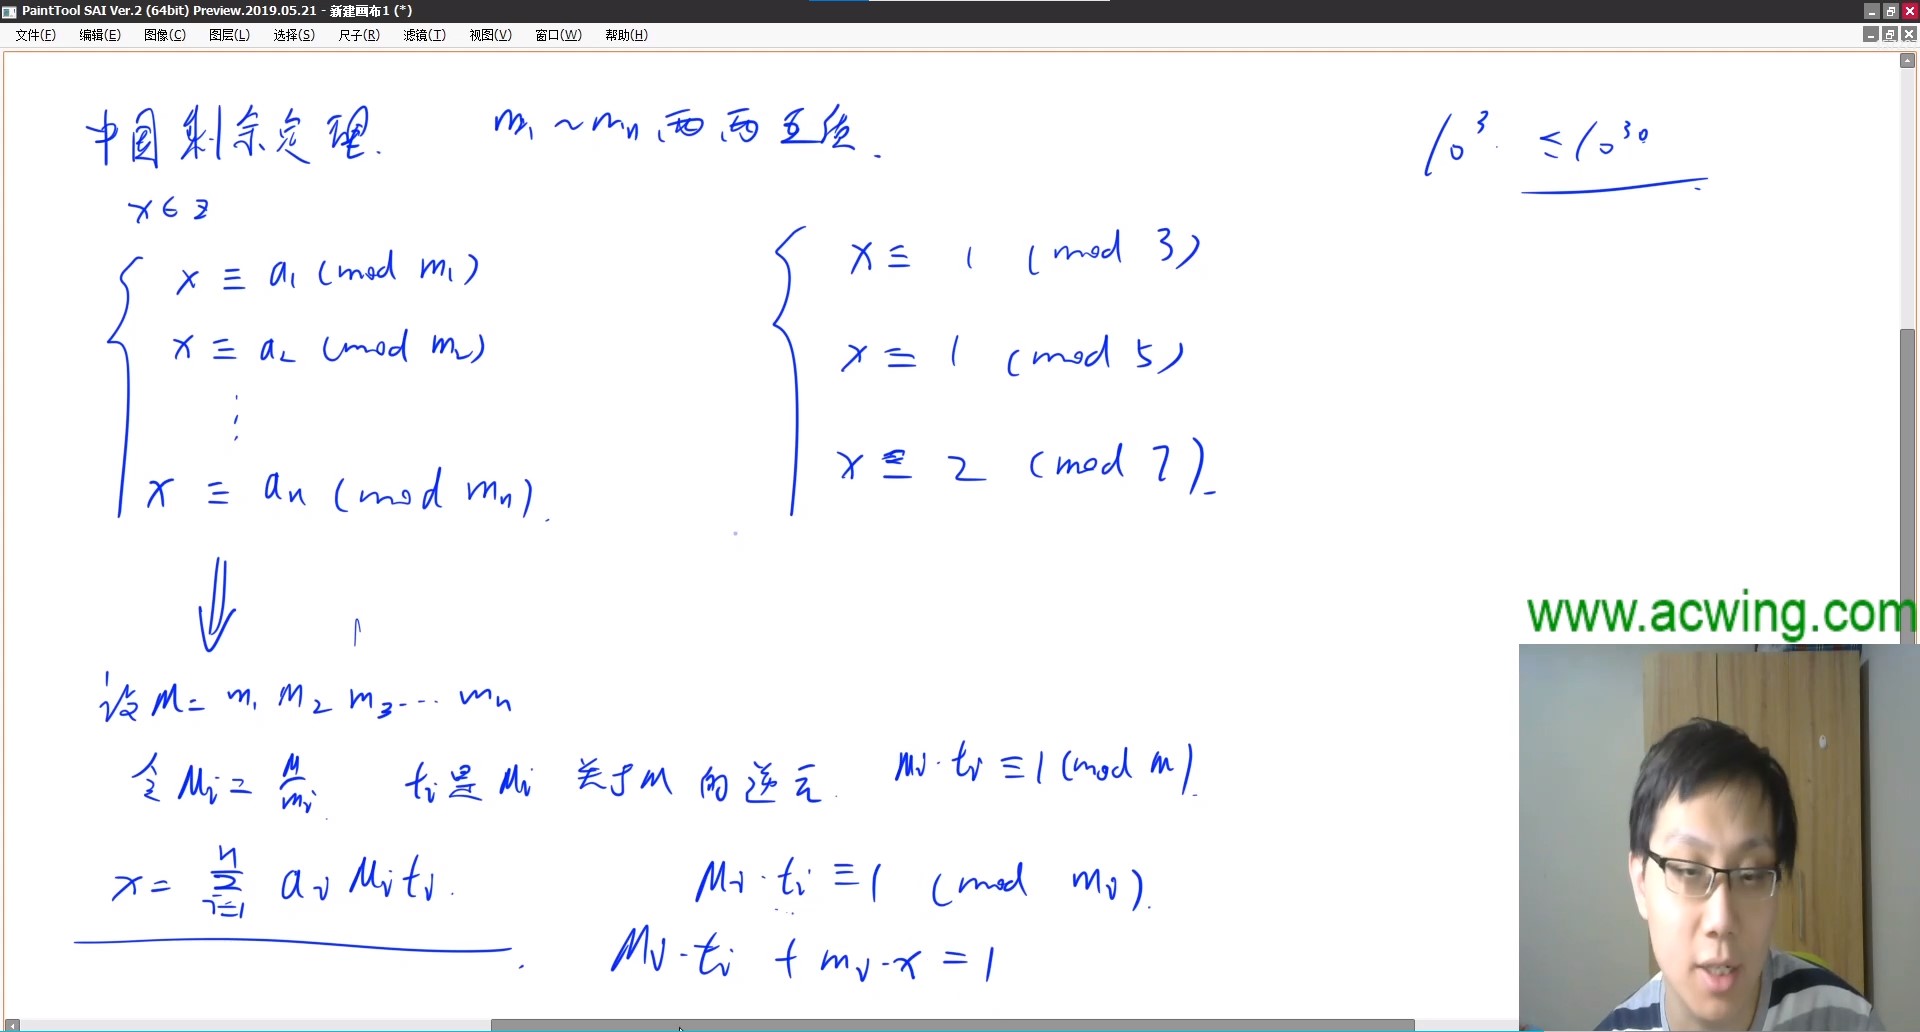 PaintTool SAI Ver.2 (64bit) Preview.2019.05.21 - 新建画布1 (*)
文件(F) 编辑(E) 图像(C) 图层(L) 选择(S) 尺子(R) 滤镜(T) 视图(V) 窗口(W) 帮助(H)
中国剩余定理. m₁ ~ mₙ 两两互质.
10³ ≤10³⁰
x∈Z
x ≡ a₁ (mod m₁)
x ≡ a₂ (mod m₂)
⋮
x ≡ aₙ (mod mₙ).
x ≡ 1 (mod 3)
x ≡ 1 (mod 5)
x ≡ 2 (mod 7)
设 M = m₁ m₂ m₃ … mₙ
令 Mᵢ = M/mᵢ. tᵢ是 Mᵢ 关于m 的逆元. mᵢ·tᵢ ≡ 1 (mod m).
x = ∑ᵢ₌₁ⁿ aᵢ Mᵢ tᵢ.
Mᵢ·tᵢ ≡ 1 (mod mᵢ).
Mᵢ·tᵢ + mᵢ·x = 1
www.acwing.com